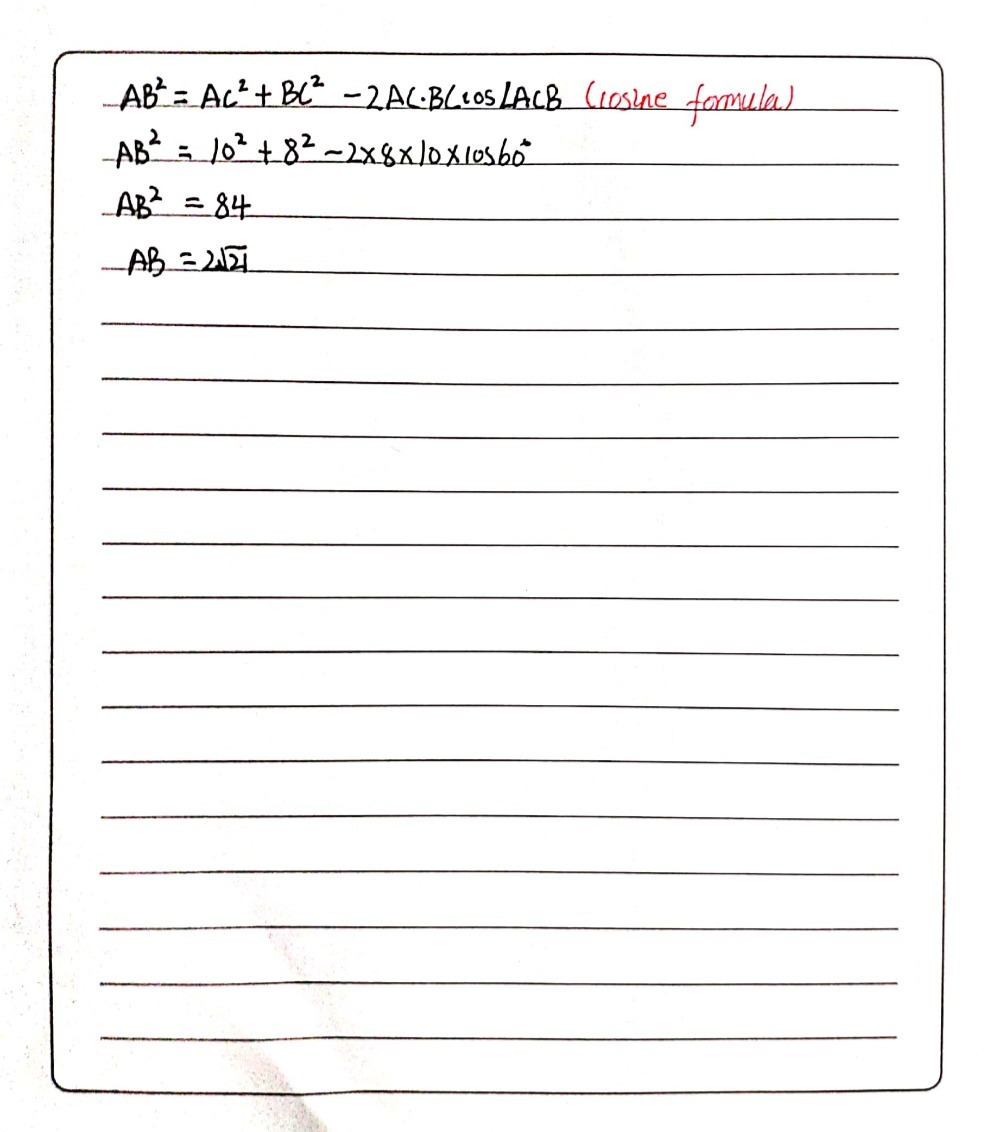 AB² = AC² + BC² - 2AC·BCcos∠ACB (cosine formula)
AB² = 10² + 8² - 2×8×10×cos60°
AB² = 84
AB = 2√21